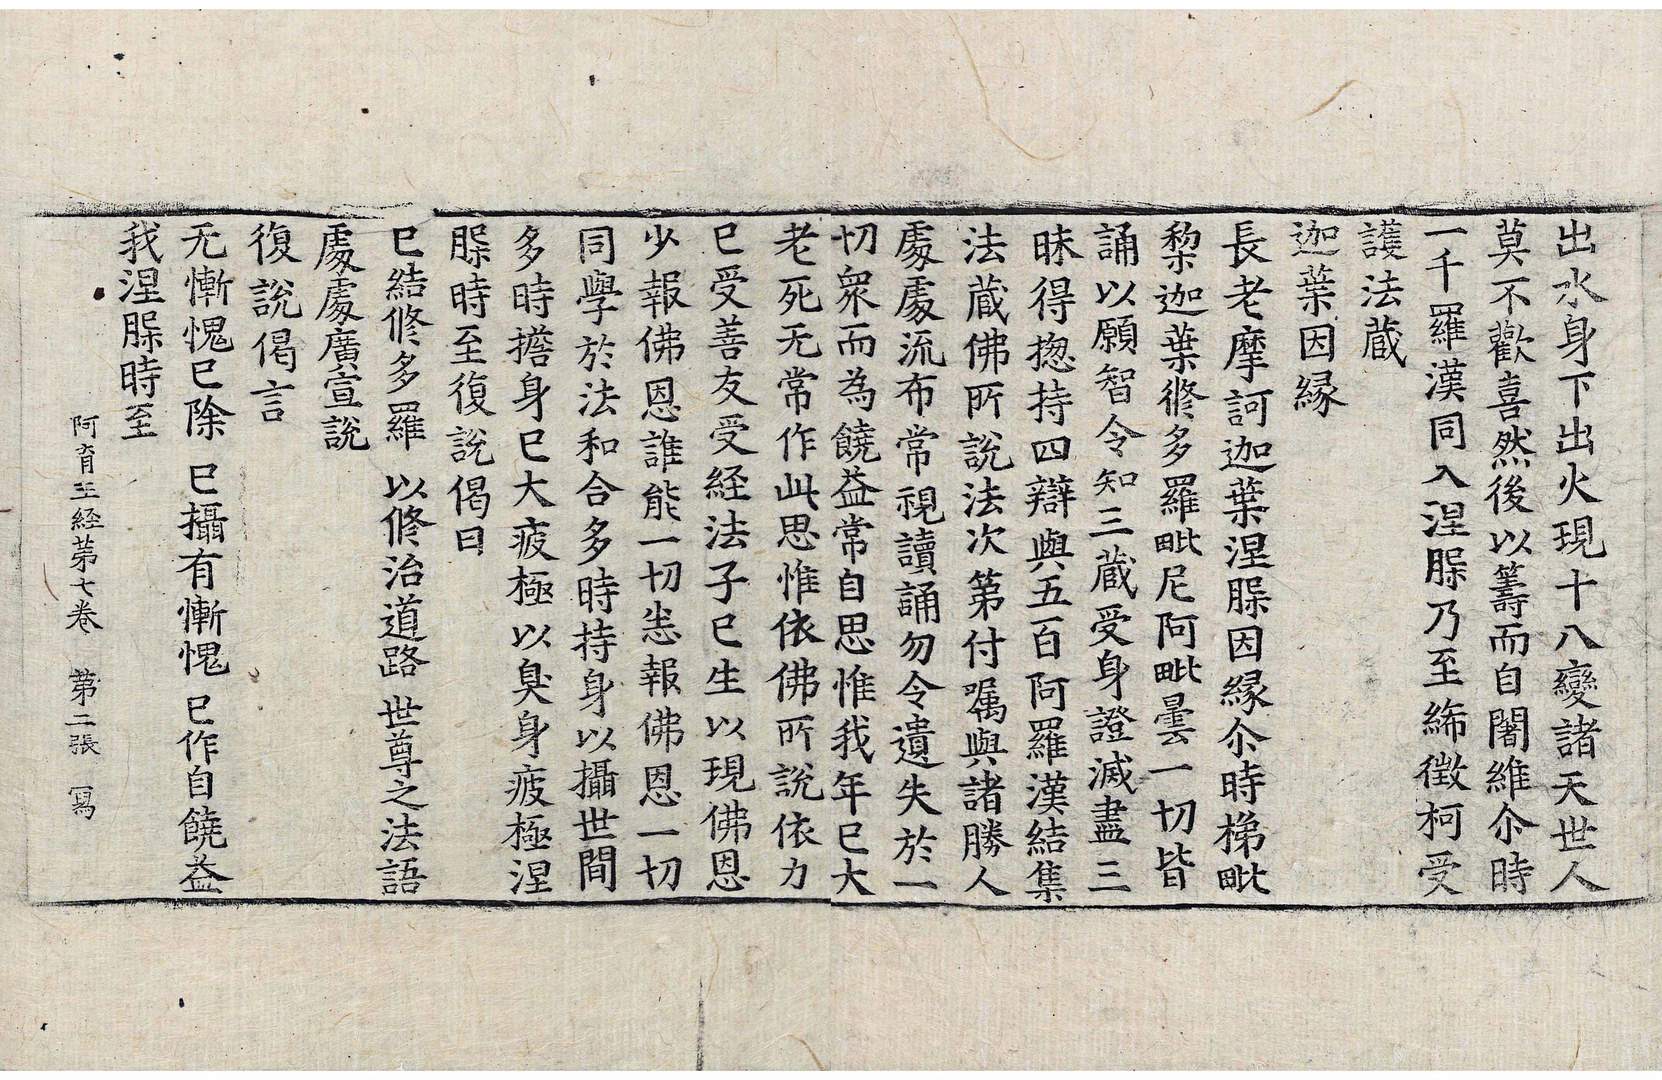 出水身下出火現十八變諸天世人
莫不歡喜然後以籌而自闍維尒時
一千羅漢同入涅槃乃至絺徵柯受
護法蔵
迦葉因縁
長老摩訶迦葉涅槃因縁尒時梯毗
梨迦葉修多羅毗尼阿毗曇一切皆
誦以願智令知三蔵受身證滅盡三
昧得揔持四辯與五百阿羅漢結集
法蔵佛所說法次第付嘱與諸勝人
處處流布常視讀誦勿令遺失於一
切衆而為饒益常自思惟我年巳大
老死无常作此思惟依佛所說依力
巳受善友受経法子巳生以現佛恩
少報佛恩誰能一切恚報佛恩一切
同學於法和合多時持身以攝世間
多時擔身巳大疲極以臭身疲極涅
槃時至復說偈曰
巳結修多羅 以修治道路 世尊之法語
處處廣宣說
復說偈言
无慚愧巳除 巳攝有慚愧 巳作自饒益
我涅槃時至
阿育王経第七卷 第二張 冩